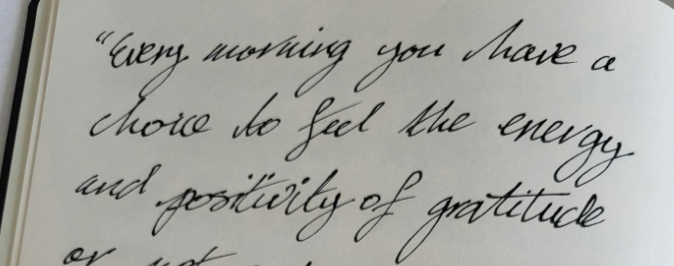 "Every morning you have a
choice to feel the energy
and positivity of gratitude
or not